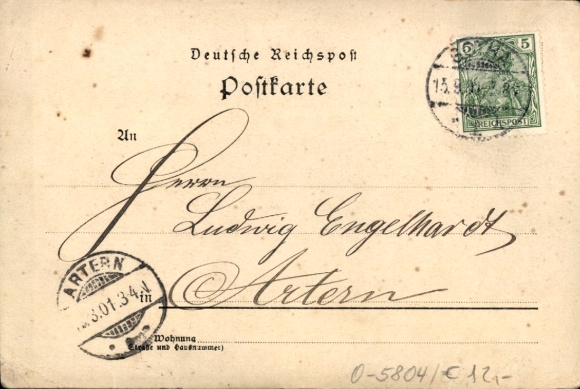 Deutsche Reichspost
Postkarte
5 5
REICHSPOST
An
Herrn
Ludwig Engelhardt
in Artern
ARTERN
3.01.3-4.N
Wohnung
(Straße und Hausnummer)
0-5804/€ 12,-